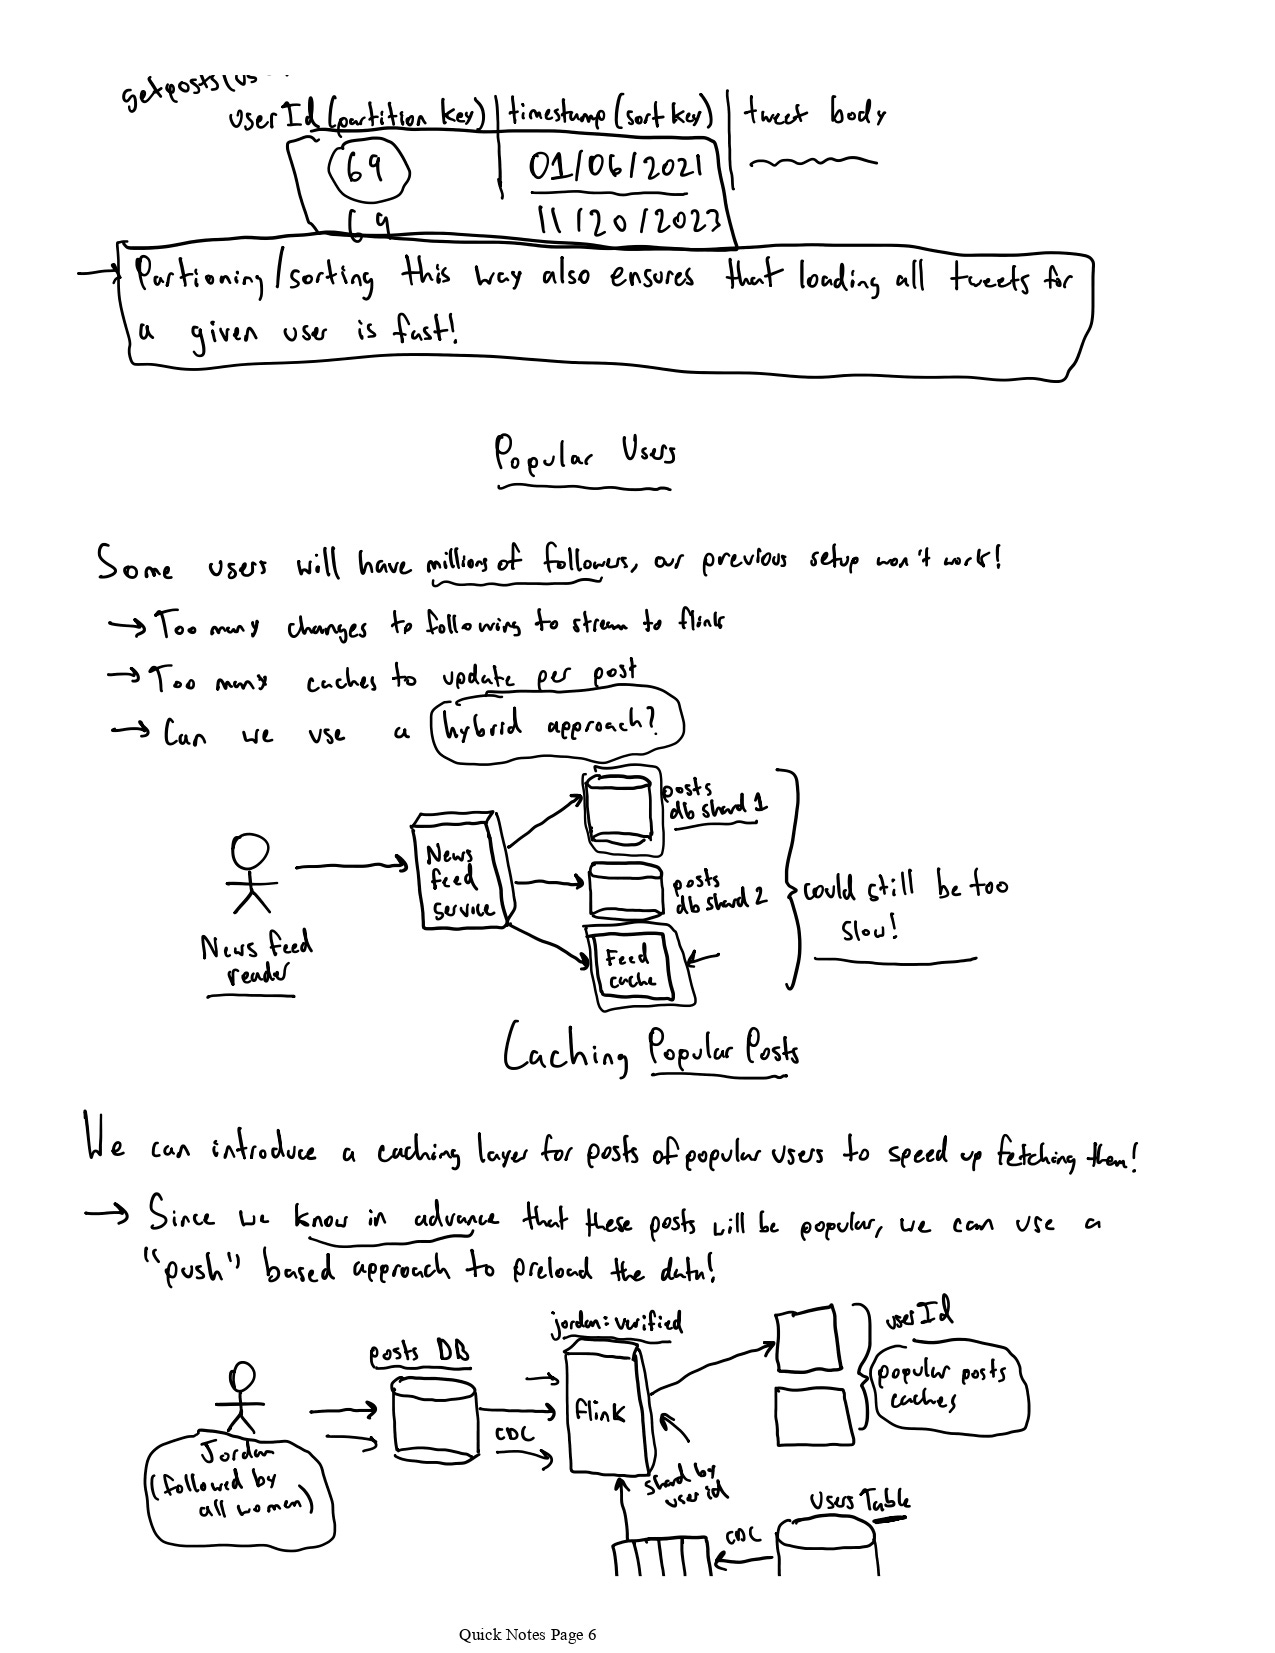 getposts(us
userId (partition key) | timestamp (sort key) | tweet body
69 01/06/2021
69 11/20/2023
Partioning/sorting this way also ensures that loading all tweets for
a given user is fast!
Popular Users
Some users will have millions of followers, our previous setup won't work!
→ Too many changes to following to stream to flink
→ Too many caches to update per post
→ Can we use a hybrid approach?
News feed reader
News feed service
posts db shard 1
posts db shard 2
Feed cache
could still be too
slow!
Caching Popular Posts
We can introduce a caching layer for posts of popular users to speed up fetching them!
→ Since we know in advance that these posts will be popular, we can use a
"push" based approach to preload the data!
Jordan
(followed by
all women)
posts DB
CDC
jordan: verified
flink
shard by
user id
userId
popular posts
caches
Users Table
CDC
Quick Notes Page 6